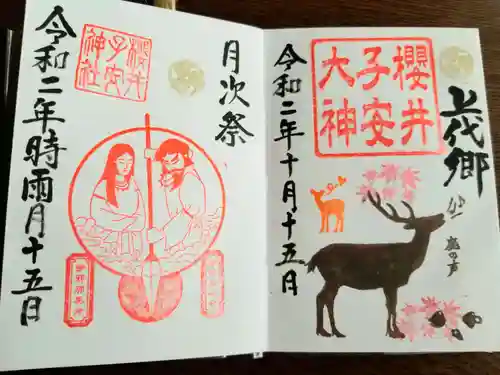 上代郷
鹿の声
櫻井
子安
大神
令和二年十月十五日
月次祭
櫻井
子安
神社
令和二年時雨月十五日